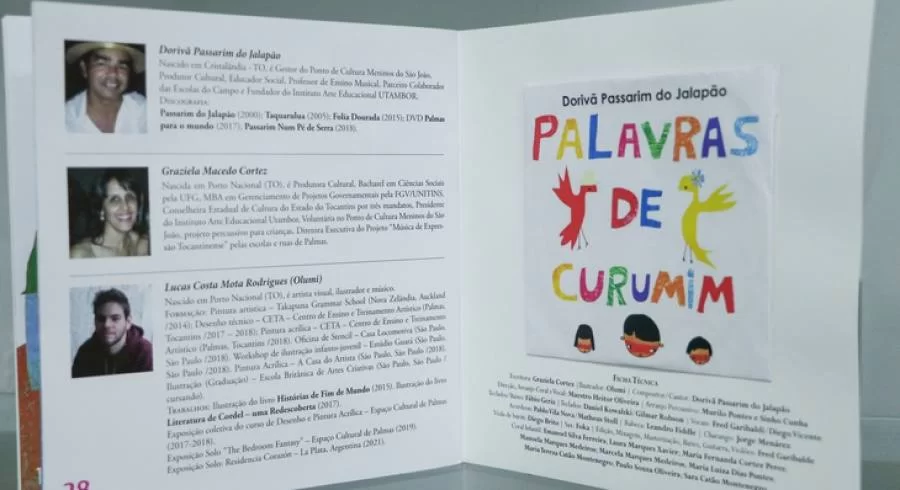 Dorivã Passarim do Jalapão
Nascido em Cristalândia - TO, é Gestor do Ponto de Cultura Meninos do São João,
Produtor Cultural, Educador Social, Professor de Ensino Musical, Parceiro Colaborador
das Escolas do Campo e Fundador do Instituto Arte Educacional UTAMBOR.
Discografia:
Passarim do Jalapão (2000); Taquaralua (2005); Folia Dourada (2015); DVD Palmas
para o mundo (2017), Passarim Num Pé de Serra (2018).
Graziela Macedo Cortez
Nascida em Porto Nacional (TO), é Produtora Cultural, Bacharel em Ciências Sociais
pela UFG, MBA em Gerenciamento de Projetos Governamentais pela FGV/UNITINS,
Conselheira Estadual de Cultura do Estado do Tocantins por três mandatos, Presidente
do Instituto Arte Educacional Utambor, Voluntária no Ponto de Cultura Meninos do São
João, projeto percussivo para crianças. Diretora Executiva do Projeto "Música de Expres-
são Tocantinense" pelas escolas e ruas de Palmas.
Lucas Costa Mota Rodrigues (Olumi)
Nascido em Porto Nacional (TO), é artista visual, ilustrador e músico.
Formação: Pintura artística – Takapuna Grammar School (Nova Zelândia, Auckland
/2014); Desenho técnico – CETA – Centro de Ensino e Treinamento Artístico (Palmas,
Tocantins /2017 – 2018); Pintura acrílica – CETA – Centro de Ensino e Treinamento
Artístico (Palmas, Tocantins /2018). Oficina de Stencil – Casa Locomotiva (São Paulo,
São Paulo /2018). Workshop de ilustração infanto-juvenil – Estúdio Guasi (São Paulo,
São Paulo /2018). Pintura Acrílica – A Casa do Artista (São Paulo, São Paulo /2018).
Ilustração (Graduação) – Escola Britânica de Artes Criativas (São Paulo, São Paulo /
cursando).
Trabalhos: Ilustração do livro Histórias de Fim de Mundo (2015). Ilustração do livro
Literatura de Cordel – uma Redescoberta (2017).
Exposição coletiva do curso de Desenho e Pintura Acrílica – Espaço Cultural de Palmas
(2017-2018).
Exposição Solo "The Bedroom Fantasy" – Espaço Cultural de Palmas (2019).
Exposição Solo: Residencia Corazón – La Plata, Argentina (2021).
28
Dorivã Passarim do Jalapão
PALAVRAS
DE
CURUMIM
Ficha Técnica
Escritora: Graziela Cortez | Ilustrador: Olumi | Compositor/ Cantor: Dorivã Passarim do Jalapão
Direção, Arranjo Coral e Vocal: Maestro Heitor Oliveira / Arranjo Percussivo: Murilo Pontes e Sinho Cunha
Teclados/Baixo: Fábio Geriz | Teclados: Daniel Kowalski, Gilmar Robinson | Vozes: Fred Garibaldi/ Diego Vicente
Acordeon: Pablo Vila Nova/ Matheus Stoll | Rabeca: Leandro Fiddle | Charango: Jorge Menárez
Viola de buriti: Diego Brito | Sax: Foka | Edição, Mixagem, Masterização, Baixo, Guitarra, Violões: Fred Garibaldi
Coral Infantil: Emanuel Silva Ferreira, Laura Marques Xavier, Maria Fernanda Cortez Perez,
Manuela Marques Medeiros, Marcela Marques Medeiros, Maria Luiza Dias Pontes,
Maria Teresa Catão Montenegro, Paulo Souza Oliveira, Sara Catão Montenegro